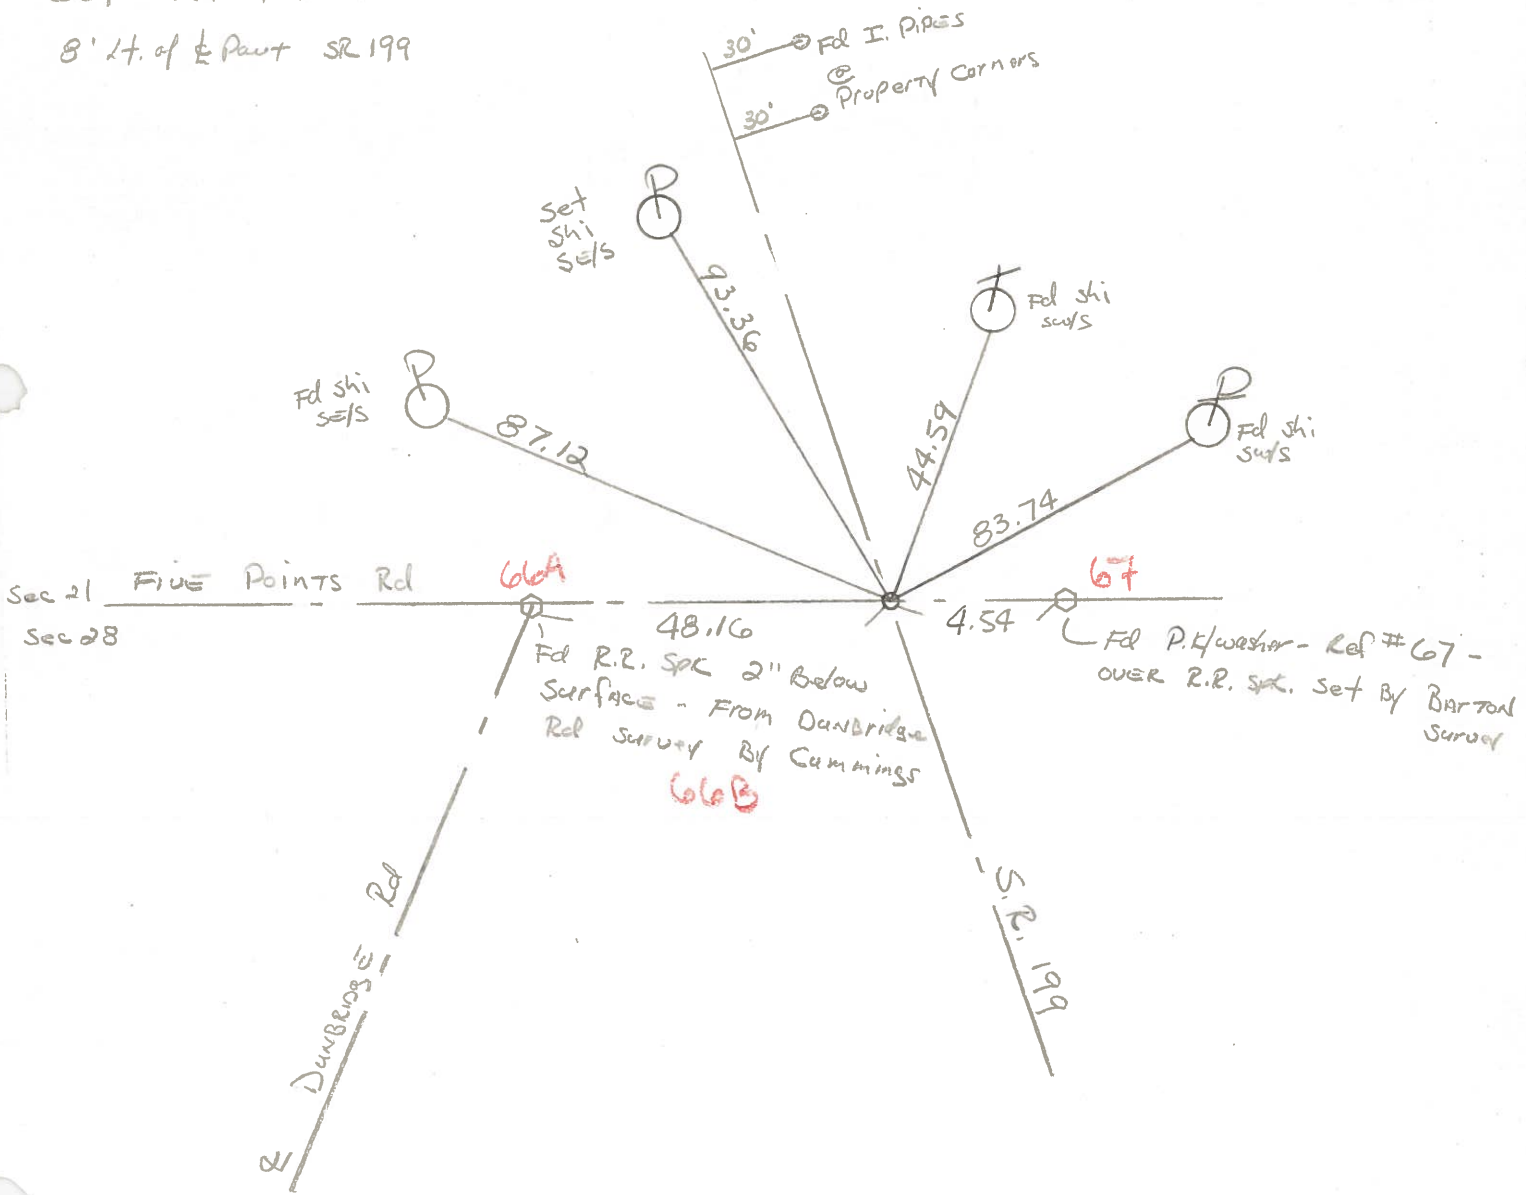 8' Lt. of ℄ Pavt SR 199
30'
Fd I. Pipes
@
Property Corners
30'
Set
Shi
SE/S
93.36
Fd Shi
SW/S
Fd Shi
SE/S
87.12
44.59
Fd Shi
SW/S
83.74
Sec 21
FIVE POINTS Rd
66A
67
Sec 28
48.16
4.54
Fd R.R. SPK 2" Below
Surface - From Dunbridge
Rd Survey By Cummings
66B
Fd P.K/washer - Ref #67 -
OVER R.R. Spk. Set By BARTON
Survey
DUNBRIDGE Rd
S.R. 199